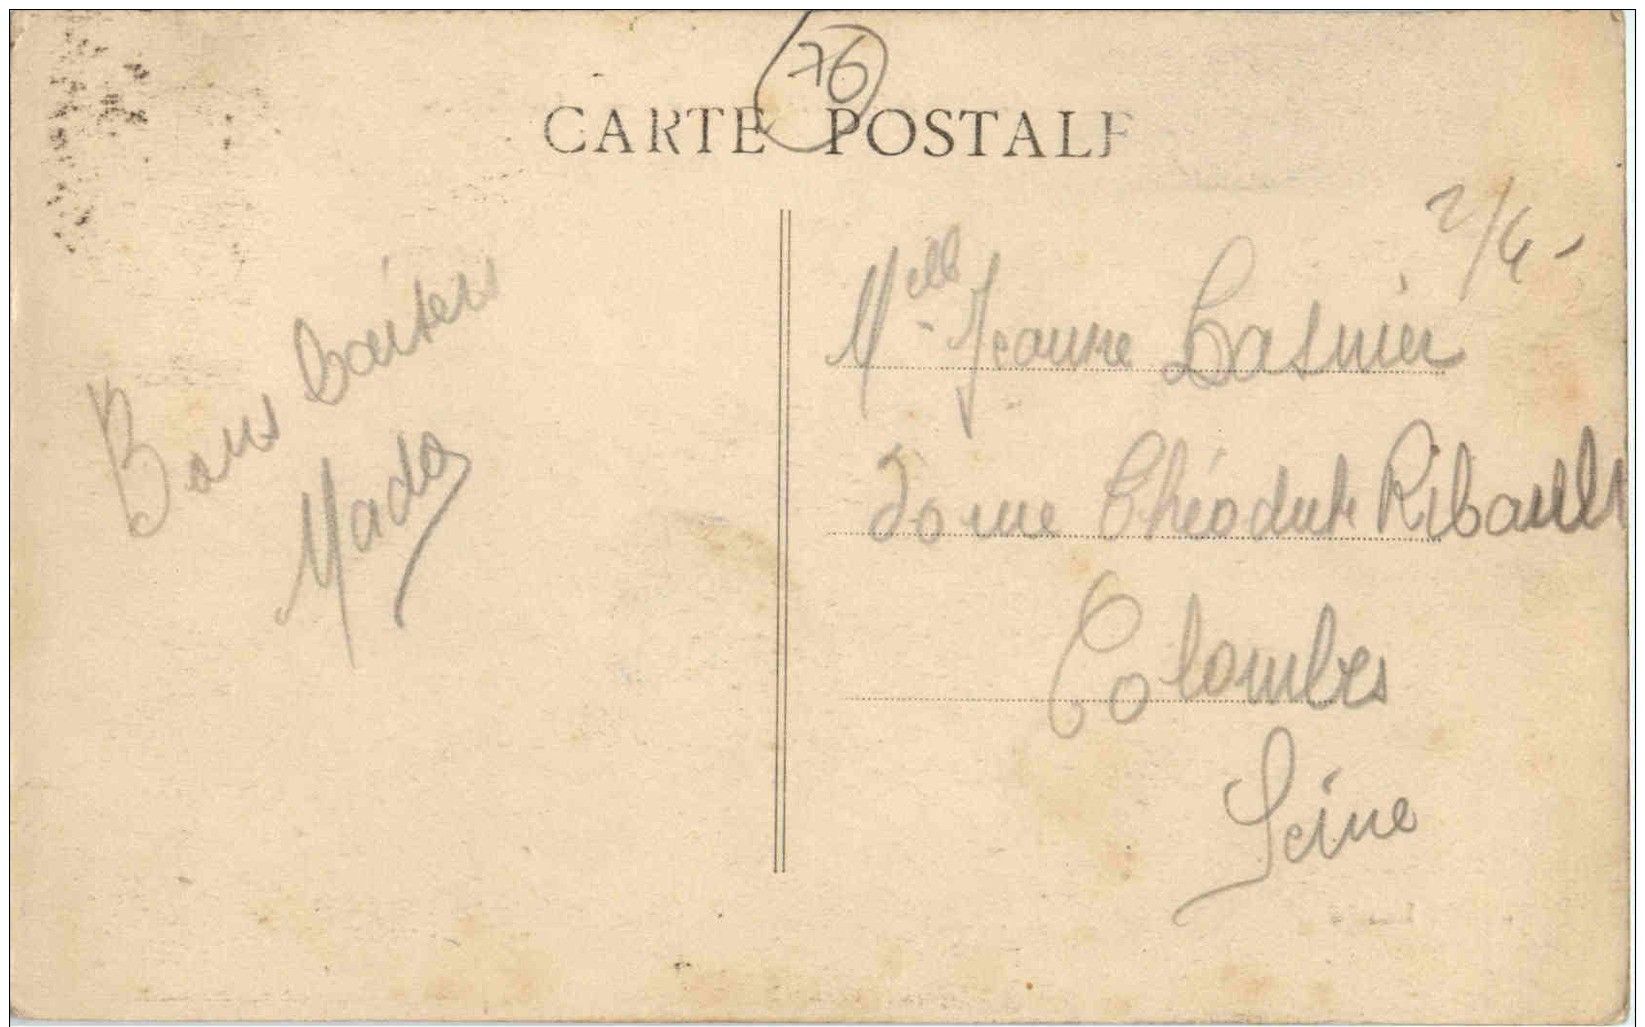 76
CARTE POSTALE
2/6 -
Bons baisers
Mado
Melle Jeanne Lasnier
30 rue Théodule Ribault
Colombes
Seine